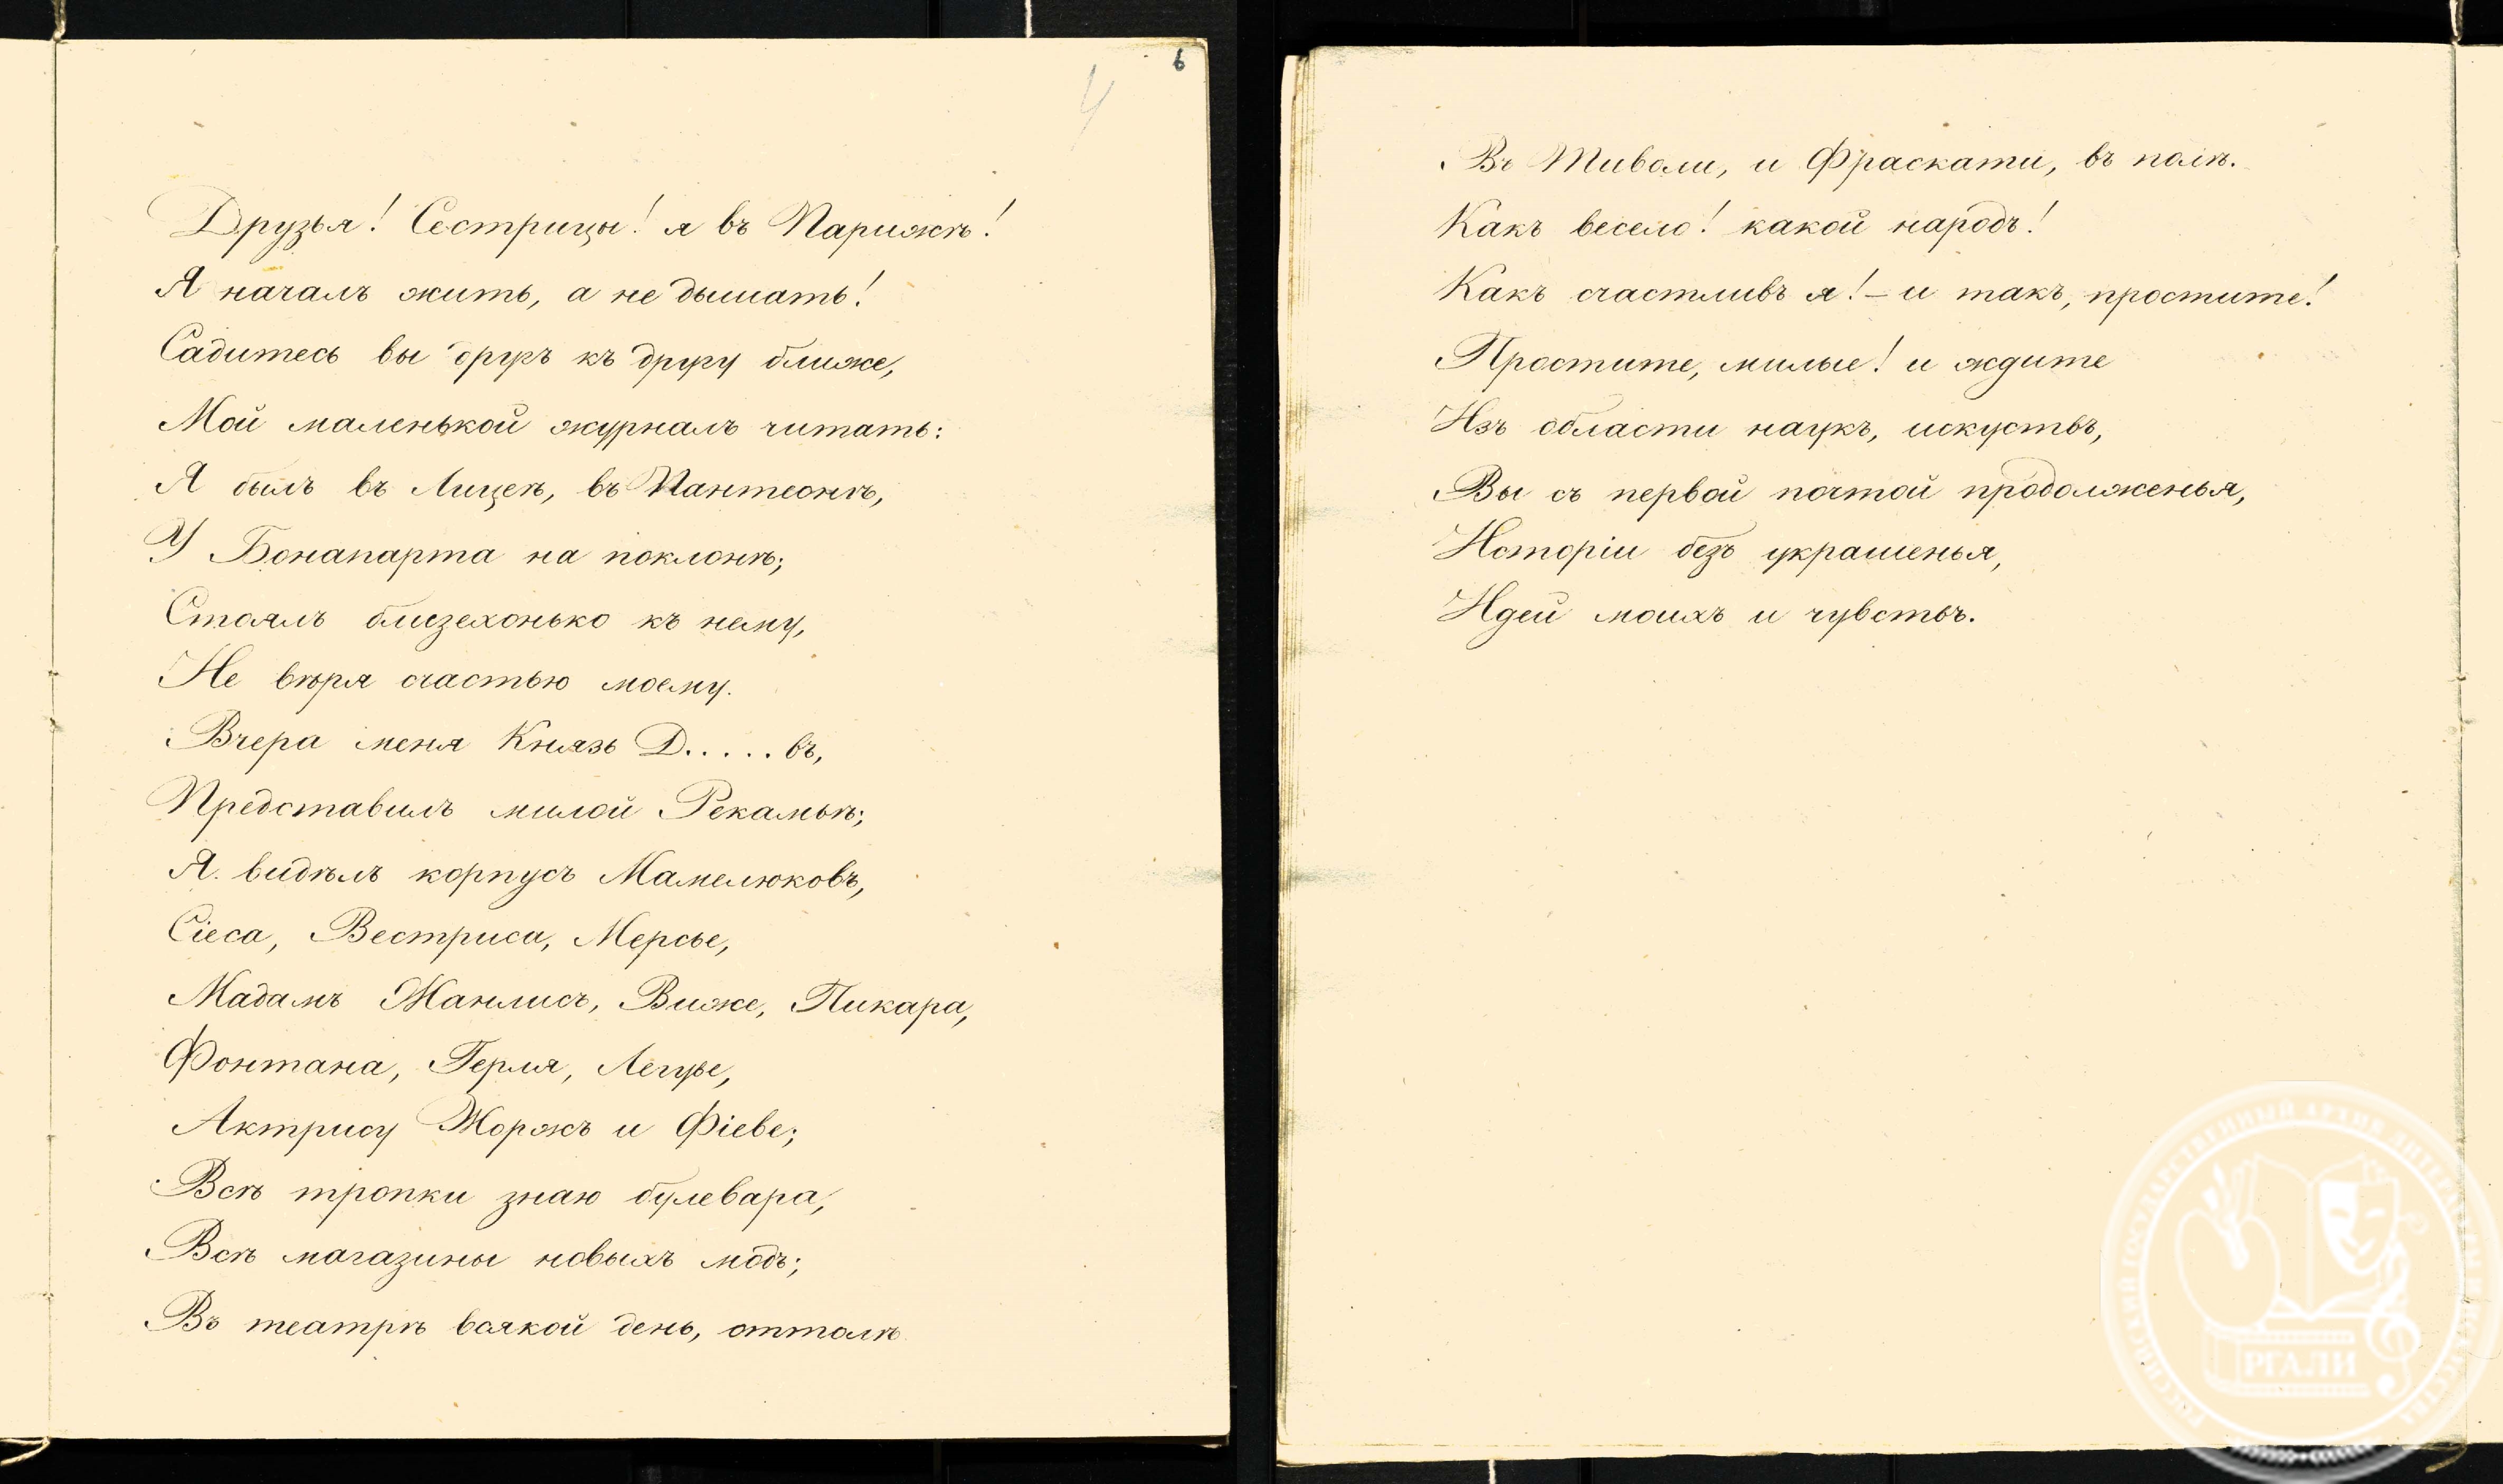 6
4
Друзья! Сестрицы! я въ Парижѣ!
Я началъ жить, а не дышать!
Садитесь вы другъ къ другу ближе,
Мой маленькой журналъ читать:
Я былъ въ Лицеѣ, въ Пантеонѣ,
У Бонапарта на поклонѣ;
Стоялъ близехонько къ нему,
Не вѣря счастью моему.
Вчера меня Князь Д.....въ,
Представилъ милой Рекамьѣ;
Я видѣлъ корпусъ Мамелюковъ,
Сіеса, Вестриса, Мерсье,
Мадамъ Жанлисъ, Виже, Пикара,
Фонтана, Герля, Легуве,
Актрису Жоржъ и Фіеве;
Всѣ тропки знаю булевара,
Всѣ магазины новыхъ модъ;
Въ театрѣ всякой день, оттолѣ
Въ Тиволи, и Фраскати, въ полѣ.
Какъ весело! какой народъ!
Какъ счастливъ я! – и такъ, простите!
Простите, милые! и ждите
Изъ области наукъ, искуствъ,
Вы съ первой почтой продолженья,
Исторіи безъ украшенья,
Идей моихъ и чувствъ.
РОССИЙСКИЙ ГОСУДАРСТВЕННЫЙ АРХИВ ЛИТЕРАТУРЫ И ИСКУССТВА
РГАЛИ